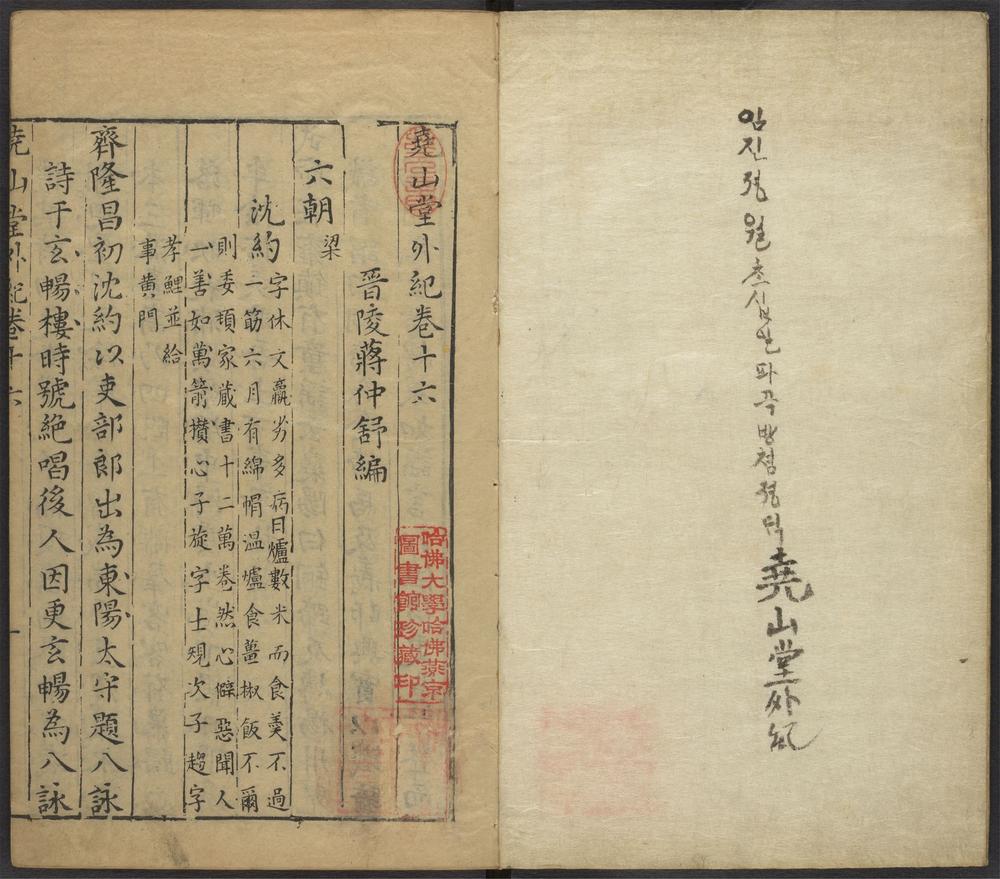 임진졍월초십일파곡방쳠졍딕堯山堂外紀
堯山堂外紀卷十六
哈佛大學哈佛燕京
圖書館珍藏印
晉陵蔣仲舒編
六朝 梁
沈約 字休文羸劣多病日爐數米而食羹不過
二筋六月有綿帽溫爐食薑椒飯不爾
則委頓家藏書十二萬卷然心僻惡聞人
一善如萬箭攢心子旋字士規次子趨字
孝鯉並給
事黄門
齊隆昌初沈約以吏部郎出為東陽太守題八詠
詩于玄暢樓時號絶唱後人因更玄暢為八詠
堯山堂外紀卷十六 一